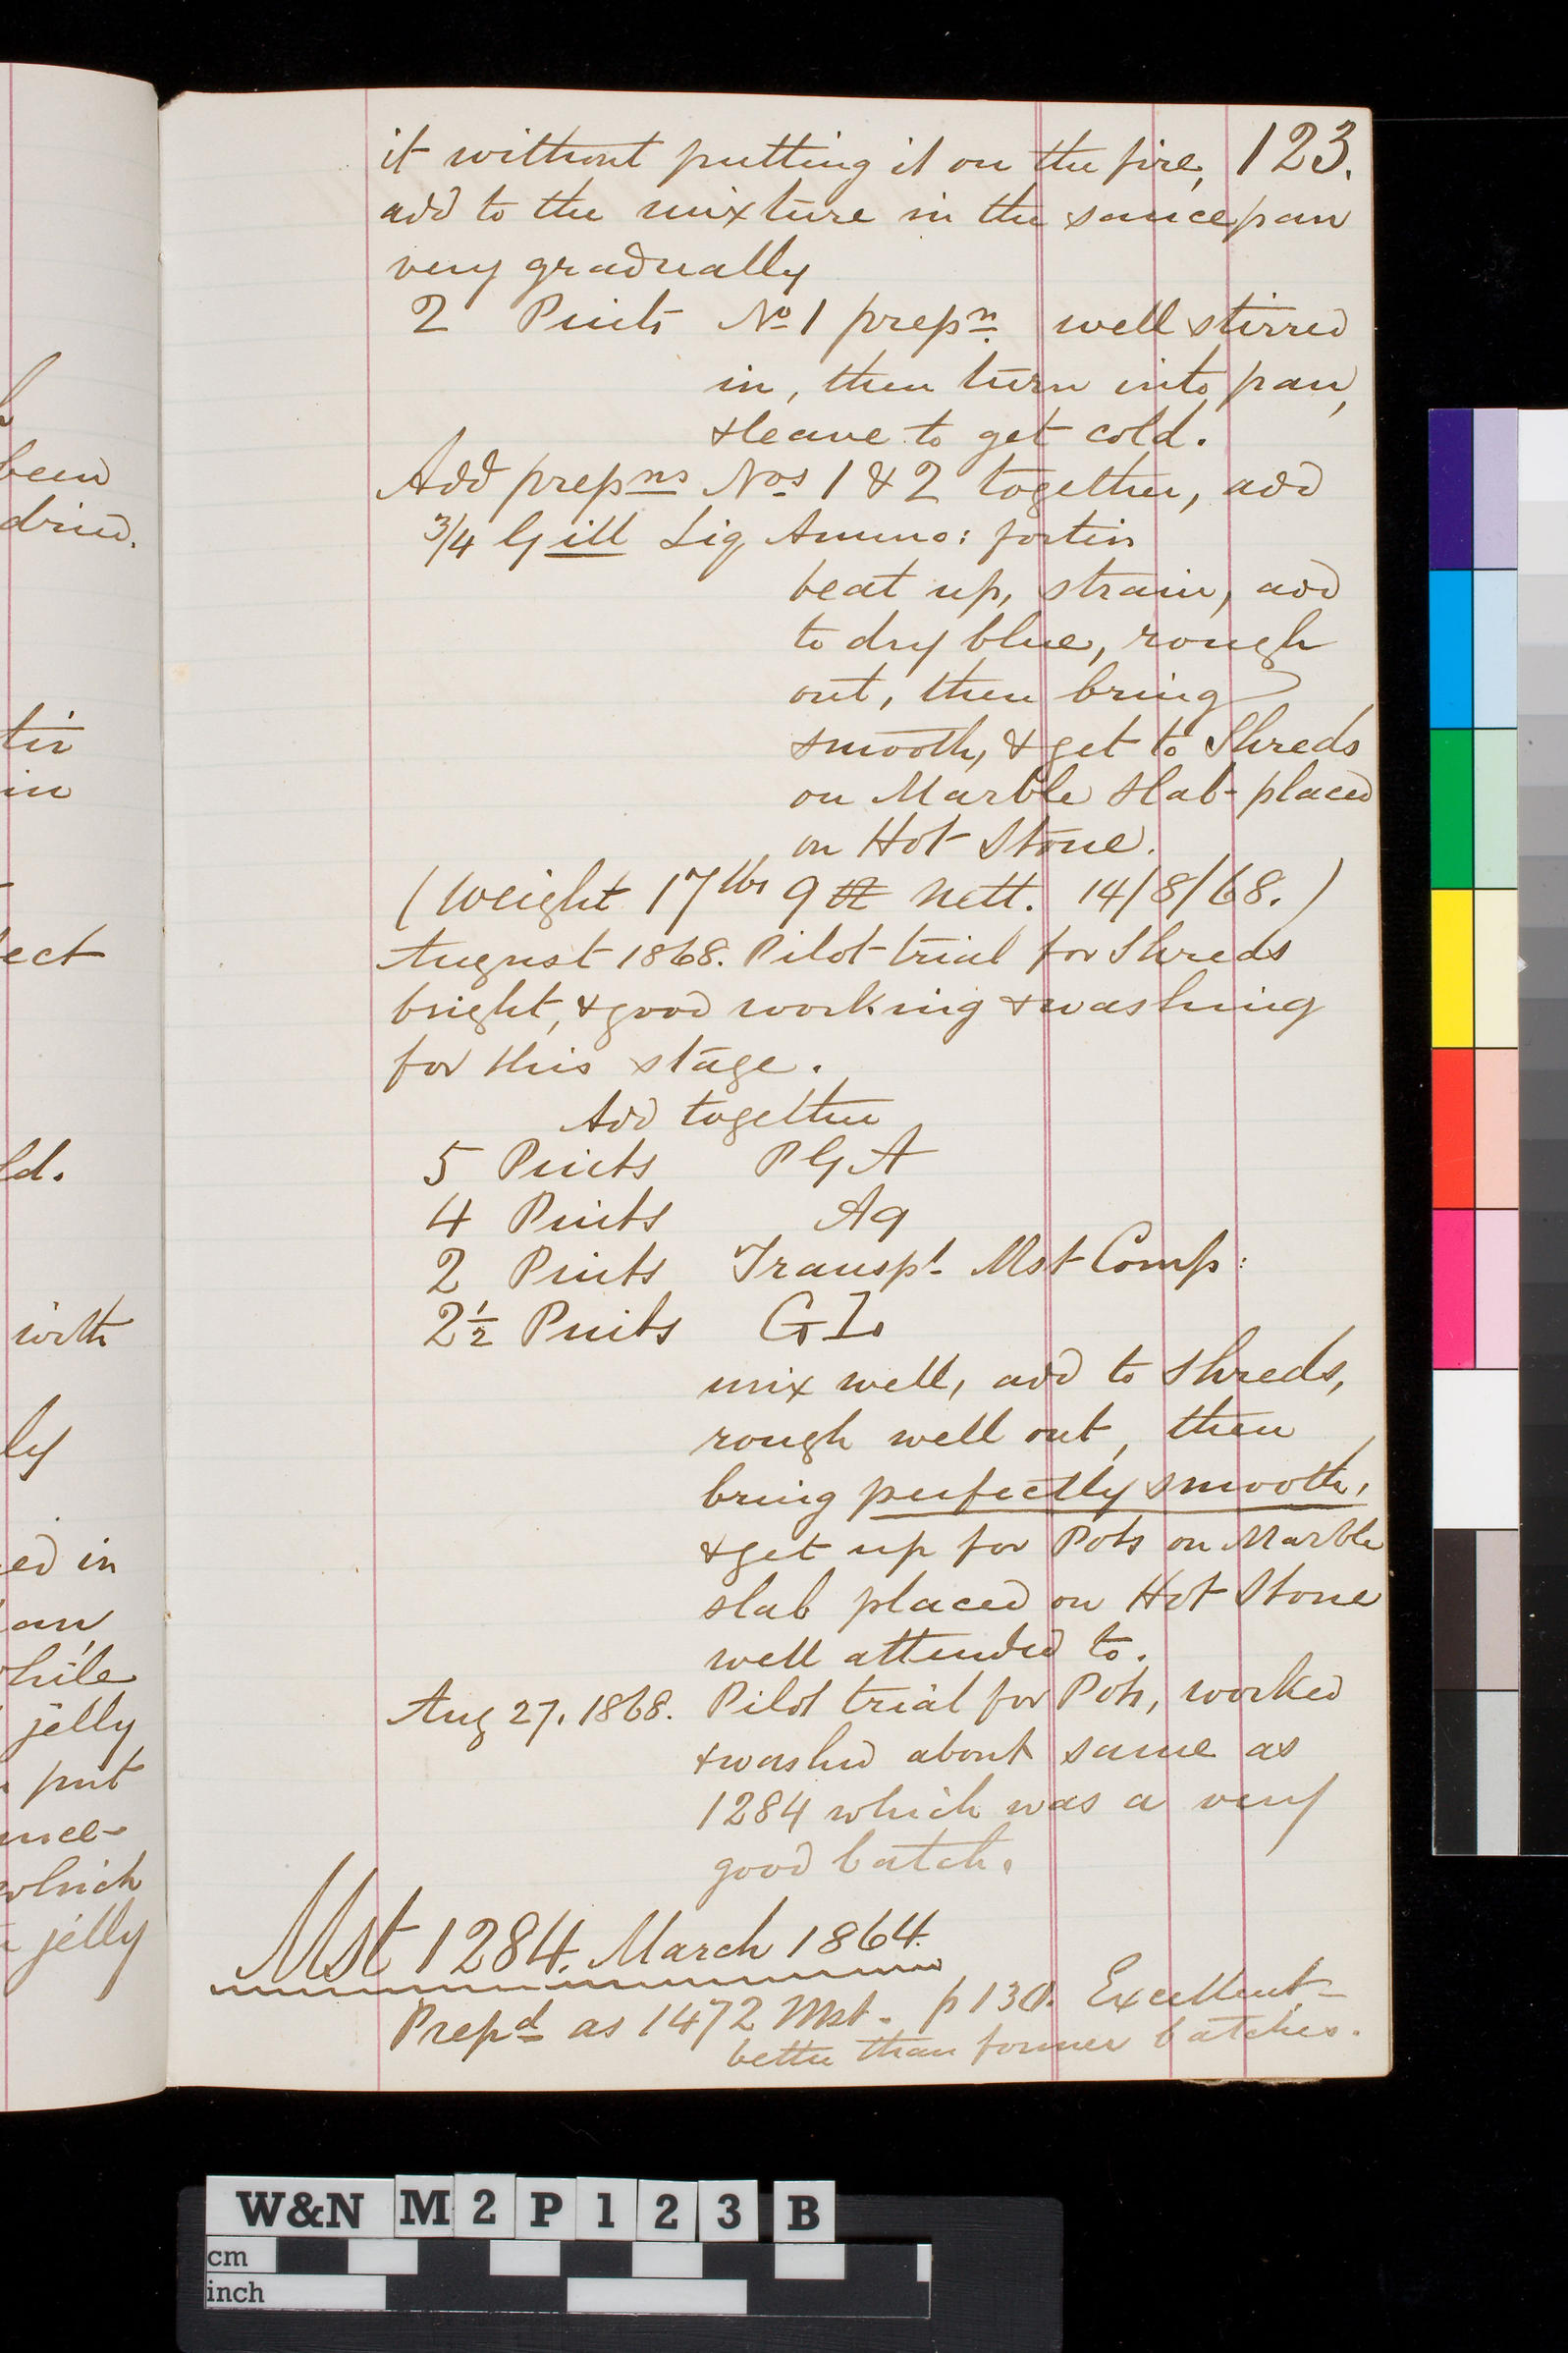 it without putting it on the fire, 123.
add to the mixture in the saucepan
very gradually
2 Pints No 1 prepn well stirred
in, then turn into pan,
& leave to get cold.
Add prepns Nos 1 & 2 together, add
3/4 Gill Liq Ammo: fortis
beat up, strain, add
to dry blue, rough
out, then bring
smooth, & get to Shreds
on Marble slab placed
on Hot Stone.
(Weight 17 lbs 9 oz nett. 14/8/68.)
August 1868. Pilot trial for Shreds
bright, & good working & washing
for this stage.
Add together
5 Pints P G A
4 Pints Aq
2 Pints Transpt Mst Comp:
2 1/2 Pints GI.
mix well, add to Shreds,
rough well out, then
bring perfectly smooth,
& get up for Pots on Marble
slab placed on Hot Stone
well attended to.
Aug 27. 1868. Pilot trial for Pots, worked
& washed about same as
1284 which was a very
good batch.
Mst 1284. March 1864.
Prepd as 1472 Mst. p 130. Excellent
better than former batches.
been
dried.
tis
in
ect
ld.
with
ly
ed in
an
hile
jelly
put
which
jelly
W&N M 2 P 1 2 3 B
cm
inch